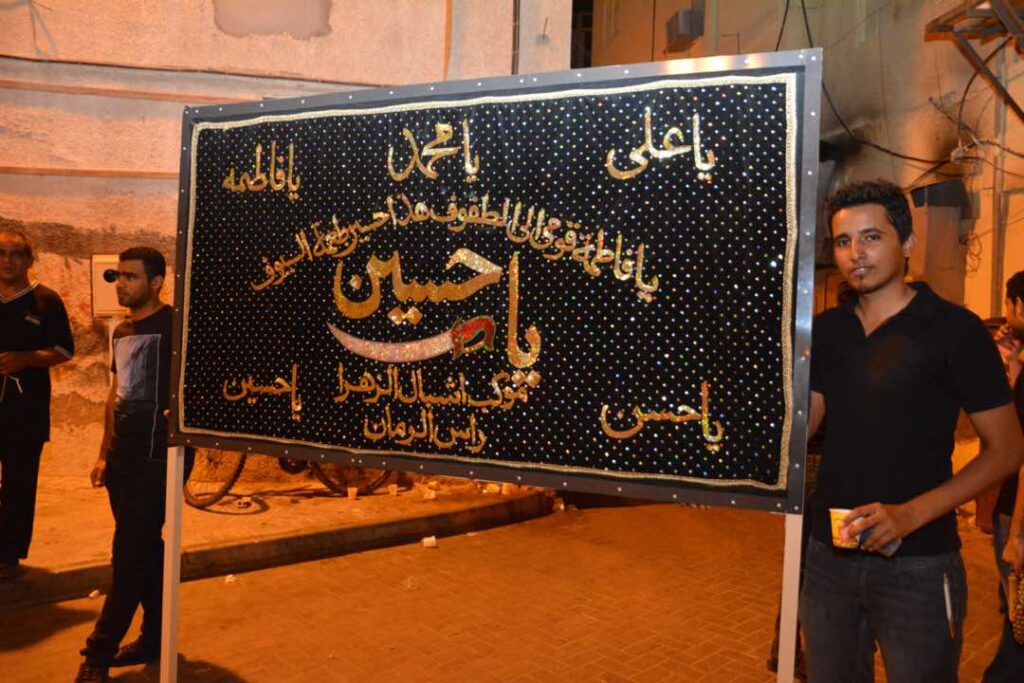 يا علي
يا محمد
يا فاطمه
يا فاطمة قومي الى الطفوف هذا حسين طعمة السيوف
يا حسين
موكب اشبال الزهرا
راس الرمان
يا حسن
يا حسين